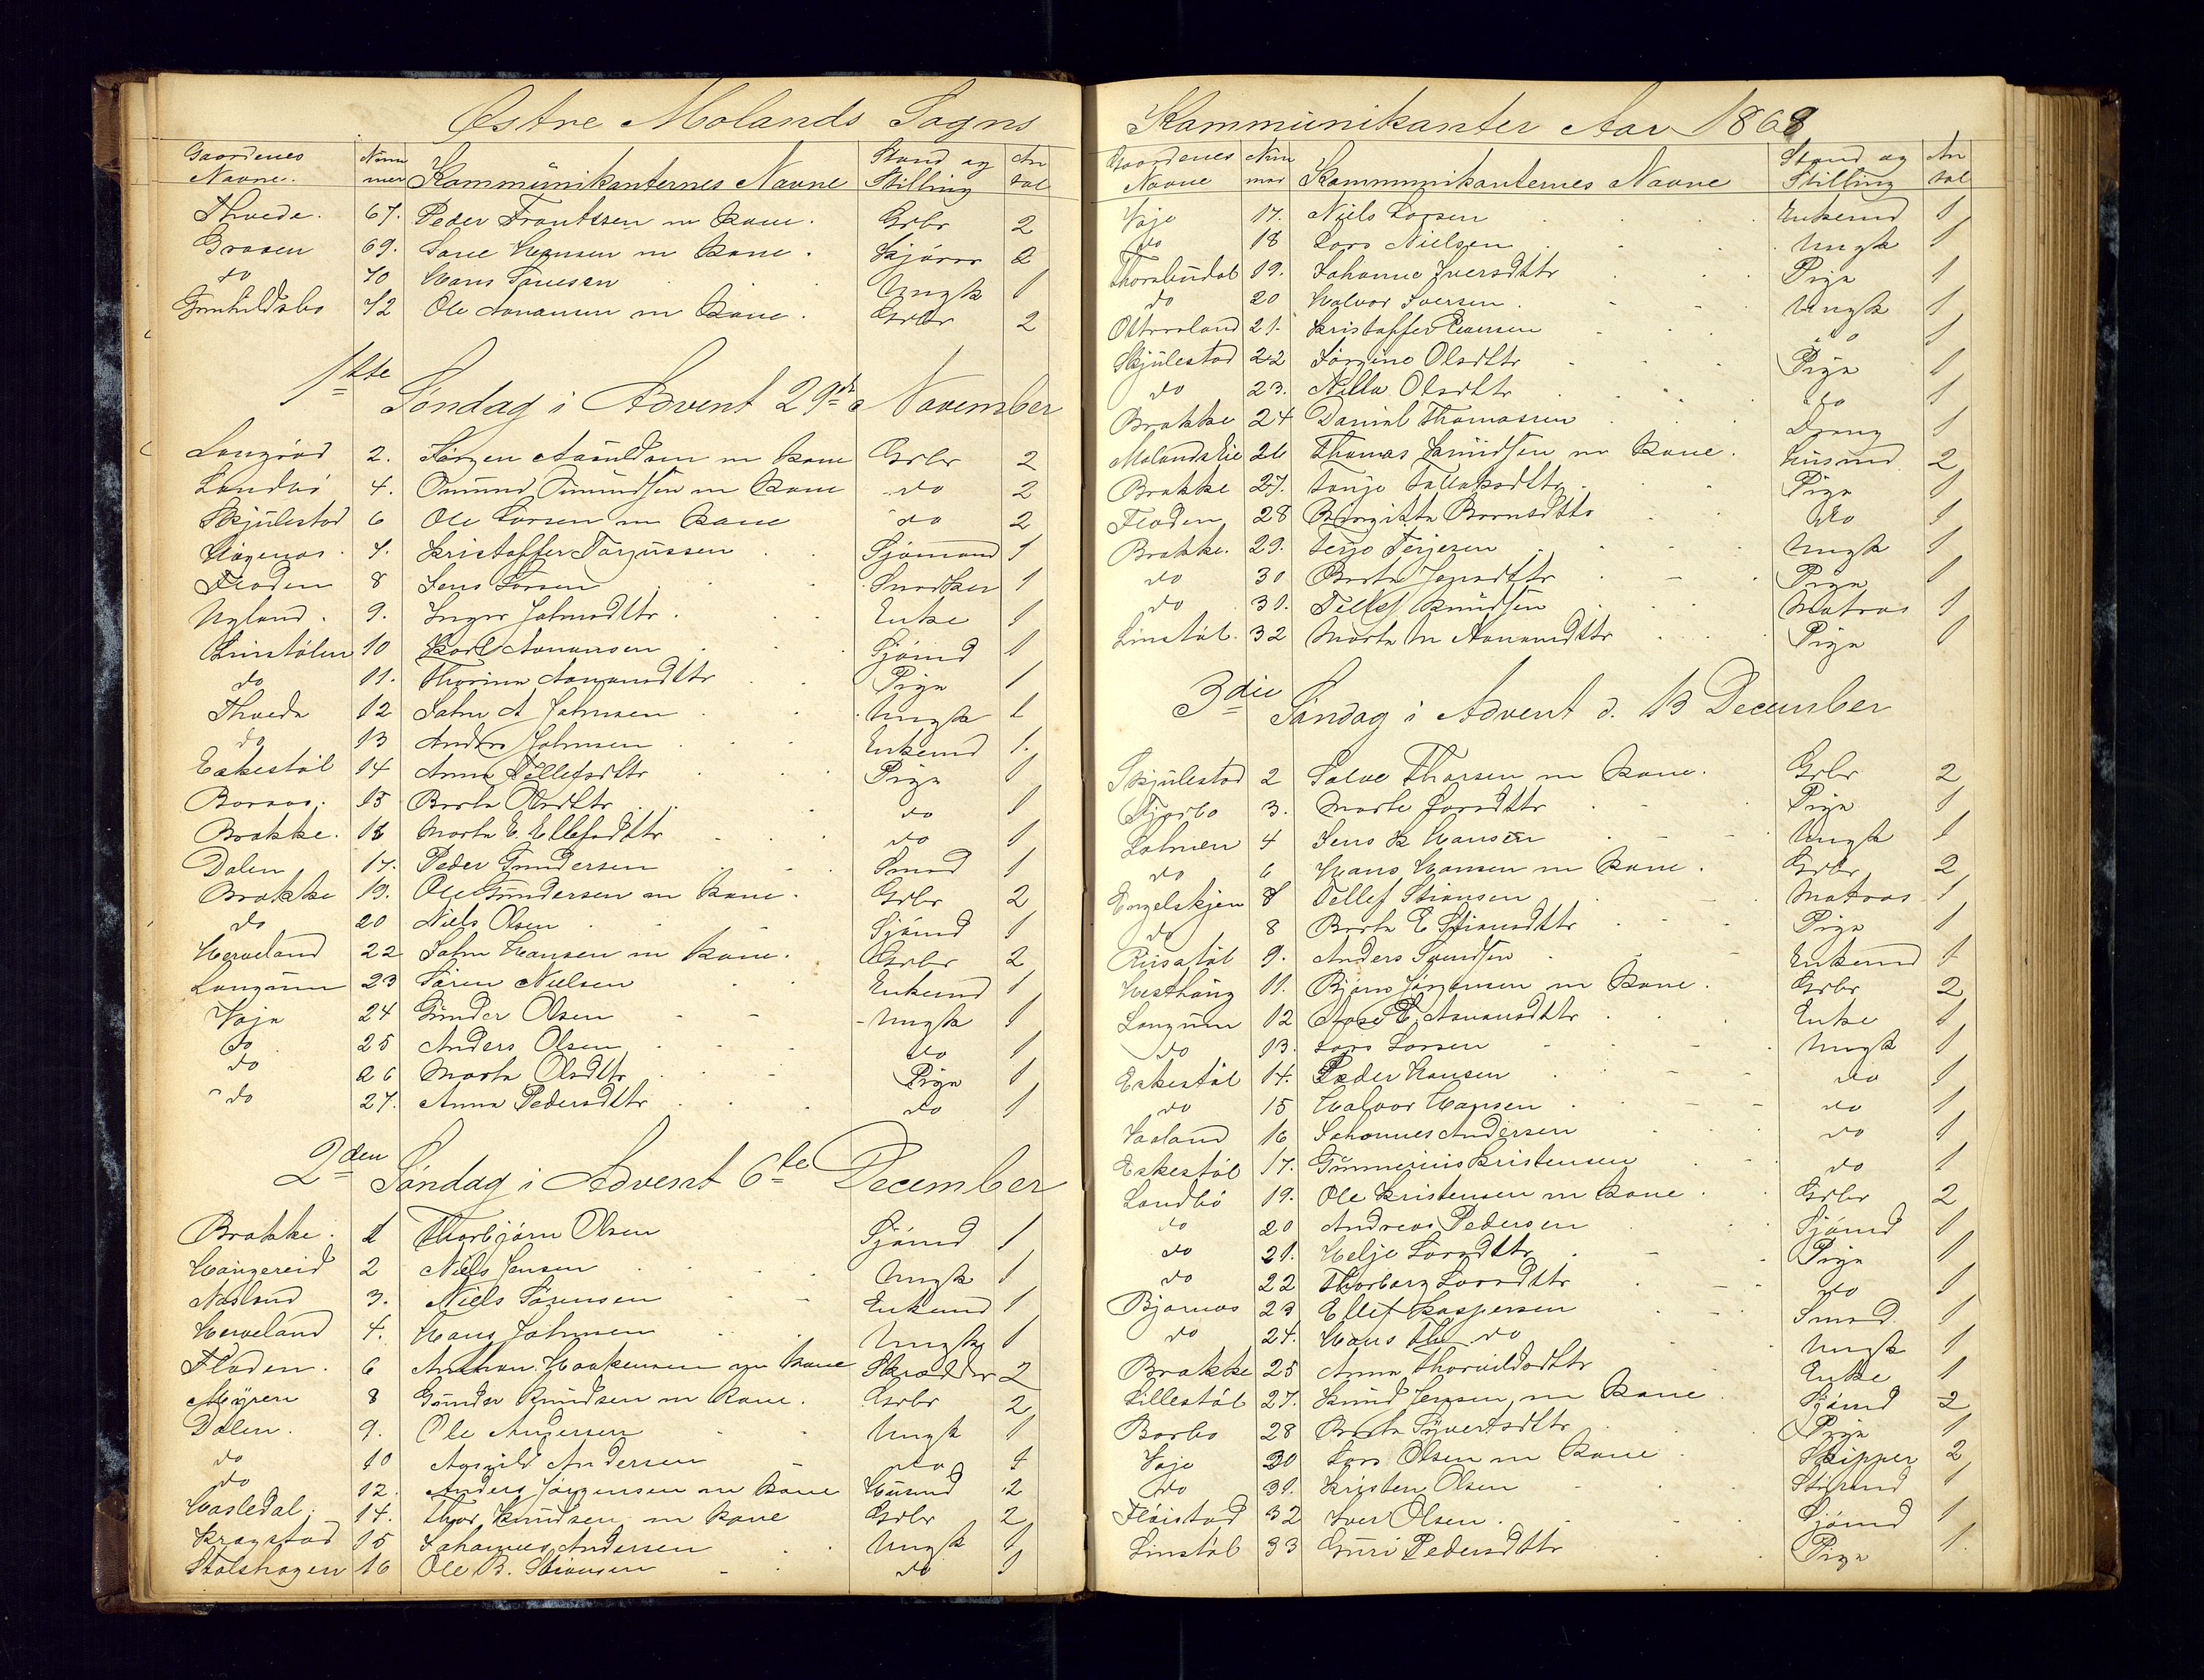 Østre Molands Sogns
Gaardenes Navne. Num mer Kommunikanternes Navne Stand og Stilling An tal
Thvede. 67. Peder Frantssen m Kone. Grbr 2
Graaen 69. Hansen m Kone. 2
do 70 Hans Ungk 1
Gunhildsbo 72 Ole Aanonsen m Kone. Grbr 2
1ste Søndag i Advent 29de November
Langrød 2. Jørgen Aasuldsen m Kone Grbr 2
Landbø 4. Omund Omundsen m Kone do 2
Skjulestad 6 Ole Larsen m Kone do 2
Hagenas. 7. Kristoffer Tarjussen Sjømand 1
Floden 8 Jens Larsen Snedker 1
Nyland. 9. Inger Johnsdttr. Enke 1
Linstølen 10 Karl Aanonsen Sjømd 1
do 11. Thorine Aanonsdttr Pige 1
Thvede 12 John A Johnsen Ungk 1
do 13 Anders Johnsen Enkemd 1.
Eskestøl 14 Anna Tellefsdttr Pige 1
Boraas. 15 Berte Olsdttr do 1
Brække. 16 Marte E. Ellefsdttr do 1
Dalen 17. Peder Gundersen Smed 1
Brække 19. Ole Gundersen m Kone. Grbr 2
do 20 Niels Olsen Sjømd 1
Herveland 22 John Hansen m Kone. Grbr 2
Langum 23 Søren Nielsen Enkemd 1
Vaje 24 Gunder Olsen Ungk 1
do 25 Anders Olsen do 1
do 26 Marte Olsdttr Pige 1
do 27. Anna Pedersdttr do 1
2den Søndag i Advent 6te December
Brække. 1 Thorbjørn Olsen Sjømd 1
Haugereid 2 Niels Jensen Ungk 1
Næsland 3. Niels Sørensen Enkemd 1
Herveland 4. Hans Johnsen Ungk 1
Floden. 6 Anthon Haakensen m Kone Skrædder 2
Myren 8 Gunder Knudsen m Kone. Grbr 2
Dalen. 9. Ole Andersen Ungk 1
do 10 Andersen do 1
do 12. Anders Jørgensen m Kone Husmd 2
Hasledal. 14. Thor Knudsen m Kone Grbr 2
Kragstad 15 Johannes Andersen Ungk 1
Stølshagen 16 Ole B. Stiansen do 1
Kommunikanter Aar 1868
Gaardenes Navne Num mer Kommunikanternes Navne Stand og Stilling An tal
Vaje 17. Niels Larsen Enkemd 1
do 18 Lars Nielsen Ungk 1
Thorsbudal 19. Johanne Iversdttr Pige 1
do 20 Halvor Iversen Ungk 1
21. Kristoffer do 1
Skjulestad 22 Jørgine Olsdttr Pige 1
do 23. Olsdttr do 1
Brække 24 Daniel Thomassen Dreng 1
Molands Eie 26 Thomas Knudsen m Kone. Husmd 2
Brække 27. Tonje Pige 1
Floden 28 do 1
Brække. 29. Terje Terjesen Ungk 1
do 30 Berte Pige 1
do 31. Tellef Knudsen Matros 1
Linstøl. 32 Marte M Aanonsdttr Pige 1
3die Søndag i Advent d. 13 December
Skjulestad 2 Salve Thorsen m Kone. Grbr 2
3. Marte Larsdttr Pige 1
Lolmen 4 Jens K Hansen Ungk 1
do 6 Hans Hansen m Kone. Grbr 2
Engelskjen 7 Tellef Stiansen Matros 1
do 8 Berte E Stiansdttr Pige 1
Riisstøl 9. Anders Svendsen Enkemd 1
Vesthaug 11. Bjørn Jørgensen m Kone. Grbr 2
Langum 12 Aase E. Aanonsdttr Enke 1
do 13. Lars Larsen Ungk 1
Eskestøl 14. Peder Hansen do 1
do 15 Halvor Hansen do 1
16 Johannes Andersen do 1
Eskestøl 17. Kristensen do 1
Landbø 19. Ole Kristensen m Kone Grbr 2
do 20 Andreas Pedersen Sjømd 1
do 21. Helje Larsdttr Pige 1
do 22 Thorborg Larsdttr do 1
Bjørnaas 23 Ellef Kaspersen Smed. 1
do 24. Hans Th do Ungk 1
Brække 25 Anne Enke 1
Lillestøl 27. Knud Jensen m Kone Sjømd 2
Borbo 28 Berte Syvertsdttr Pige 1
Vaje 30 Lars Olsen m Kone Skipper 2
do 31. Kristen Olsen Styrmd 1
Fløistad 32 Iver Olsen. Sjømd 1
Linstøl 33 Guri Pedersdttr Pige 1.